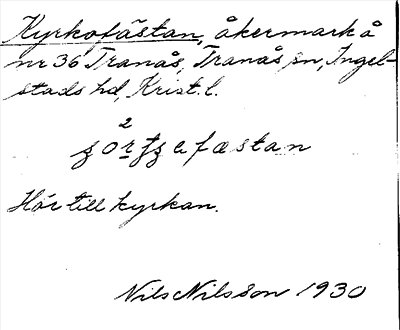 Kyrkofästan, åkermark å
nr 36 Tranås, Tranås sn, Ingel-
stads hd, Krist. l.
2
fæstan
Hör till kyrkan.
Nils Nilsson 1930